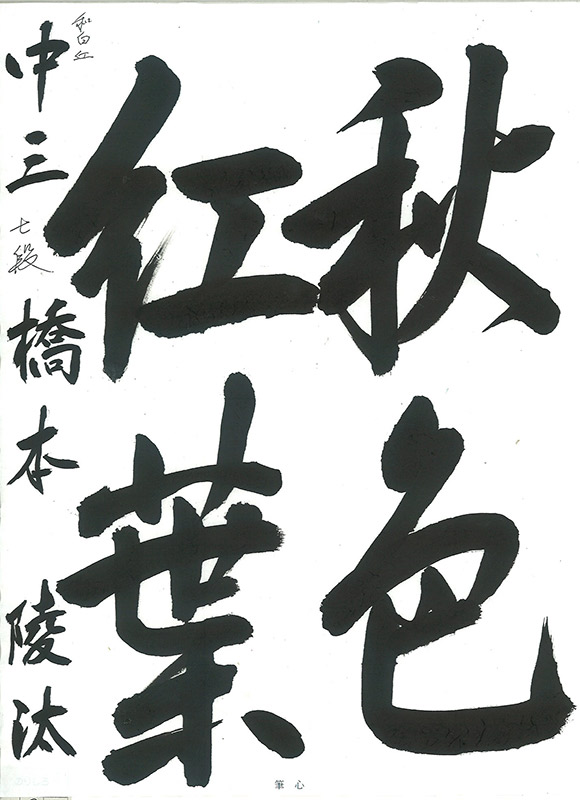 秋色
紅葉
和白丘
中三 七段 橋本 陵汰
筆心